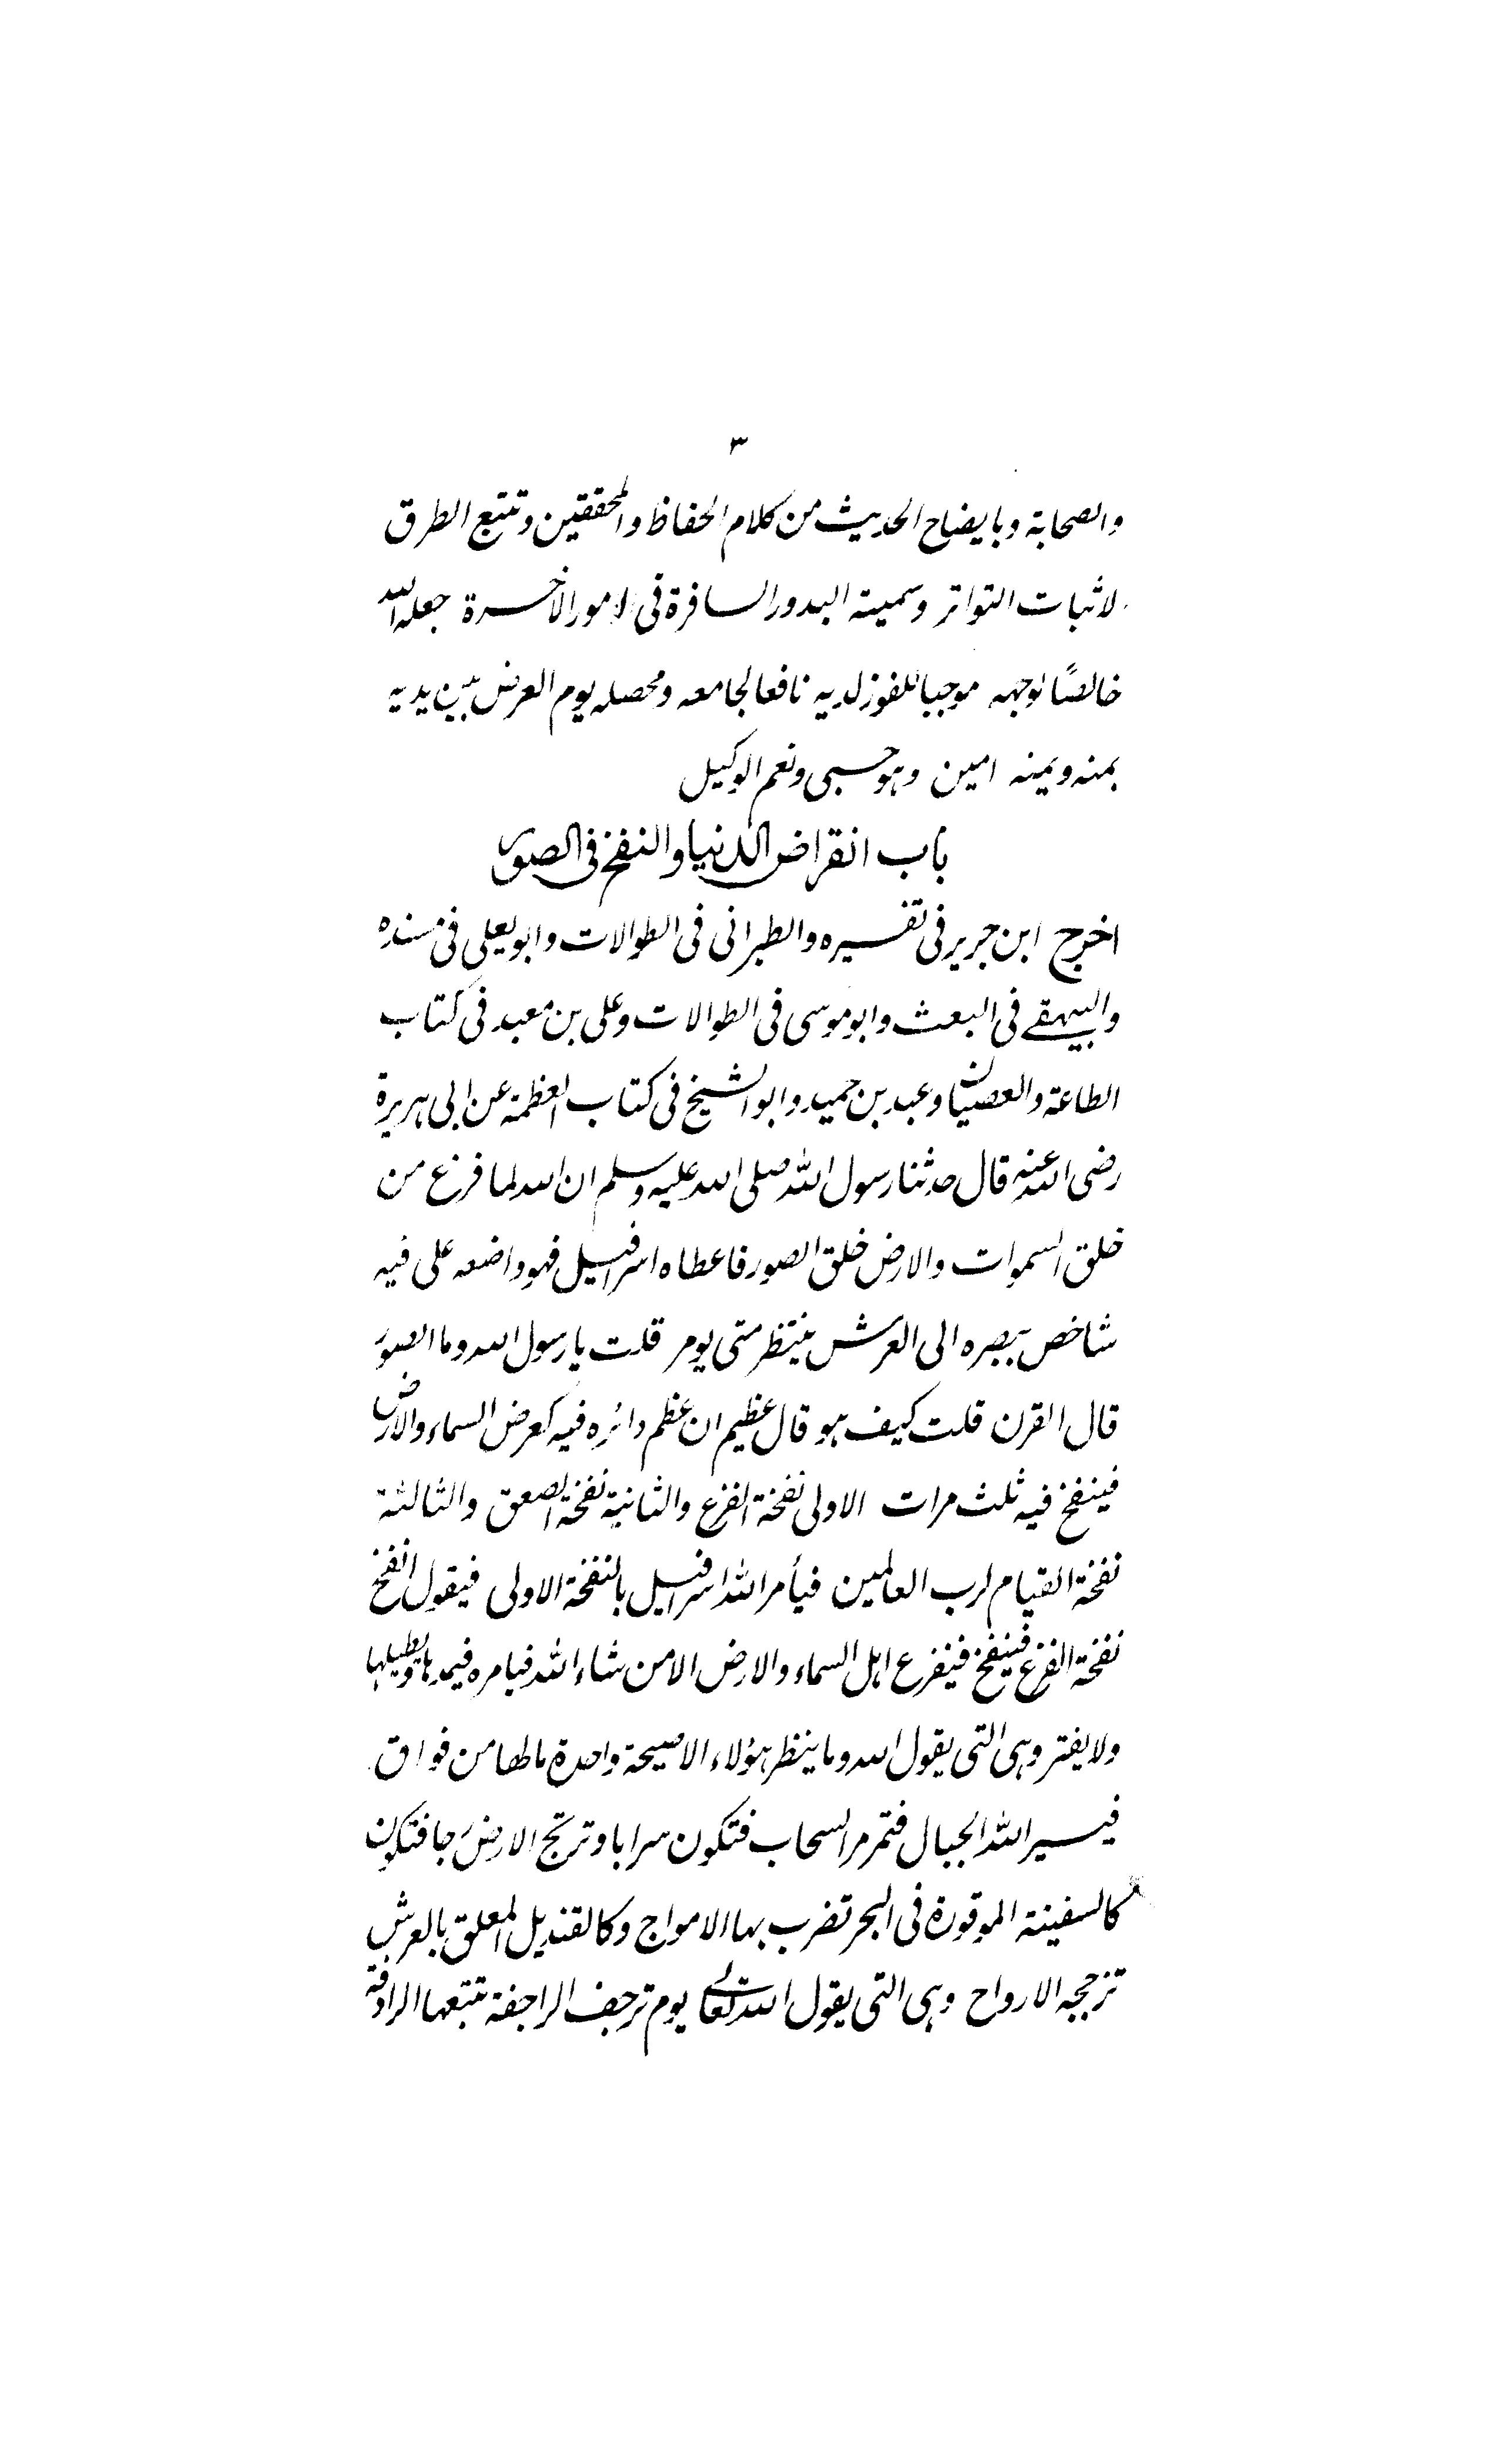 ٣
والصحابة وبايضاح الحديث من كلام الحفاظ والمحققين وتتبع الطرق
لاثبات التواتر وسميته البدور السافرة فى الامور الآخرة جعله الله
خالصًا لوجهه موجبا للفوز لديه نافعا لجامعه ومحصله يوم العرض بين يديه
بمنه ويمينه امين وهو حسبى ونعم الوكيل
باب انقراض الدنيا والنفخ فى الصور
اخرج ابن جرير فى تفسيره والطبرانى فى الطوالات وابو يعلى فى مسنده
والبيهقے فى البعث وابو موسى فى الطوالات وعلى بن معبد فى كتاب
الطاعة والعصيان وعبد بن حميد وابو الشيخ فى كتاب العظمة عن ابى هريرة
رضى الله عنه قال حدثنا رسول الله صلى الله عليه وسلم ان الله لما فرغ من
خلق السموات والارض خلق الصور فاعطاه اسرافيل فهو واضعه على فيه
شاخص ببصره الى العرش ينتظر متى يومر قلت يا رسول الله وما الصور
قال القرن قلت كيف هو قال عظيم ان عظم دائره فيه كعرض السماء والارض
فينفخ فيه ثلث مرات الاولى نفخة الفزع والثانية نفخة الصعق والثالثة
نفخة القيام لرب العالمين فيأمر الله اسرافيل بالنفخة الاولى فيقول انفخ
نفخة الفزع فينفخ فيفزع اهل السماء والارض الا من شاء الله فيامره فيمدها ويطيلها
ولا يفتر وهى التى يقول الله وما ينظر هؤلاء الا صيحة واحدة مالها من فواق
فيسير الله الجبال فتمر مر السحاب فتكون سرابا وترتج الارض رجا فتكون
كالسفينة الموقورة فى البحر تضرب بها الامواج وكالقنديل المعلق بالعرش
ترججه الارواح وهى التى يقول الله تعالى يوم ترجف الراجفة تتبعها الرادفة